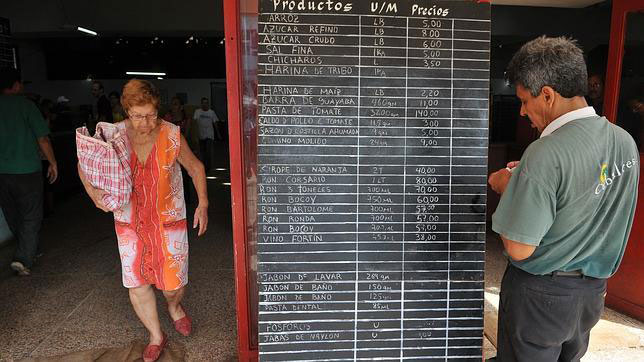 Productos U/M Precios
ARROZ LB 5,00
AZUCAR REFINO LB 8,00
AZUCAR CRUDO LB 6,00
SAL FINA 1Kg 5,00
CHICHAROS L 3,50
HARINA DE TRIGO 1Kg
HARINA DE MAIZ LB 2,20
BARRA DE GUAYABA 460gm 11,00
PASTA DE TOMATE 3200gm 140,00
CALDO D POLLO C TOMATE 3,00
SAZON D COSTILLA AHUMADA 5,00
COMINO MOLIDO 4,00
SIROPE DE NARANJA 40,00
RON CORSARIO 1LT 80,00
RON 3 TONELES 700ML 70,00
RON BOCOY 750ML 60,00
RON BARTOLOME 700ML
RON RONDA 700ML 57,00
RON BOCOY
VINO FORTIN 38,00
JABON DE LAVAR
JABON DE BAÑO 150gm
JABON DE BAÑO 125gm
PASTA DENTAL
FOSFOROS U
JABAS DE NAYLON U